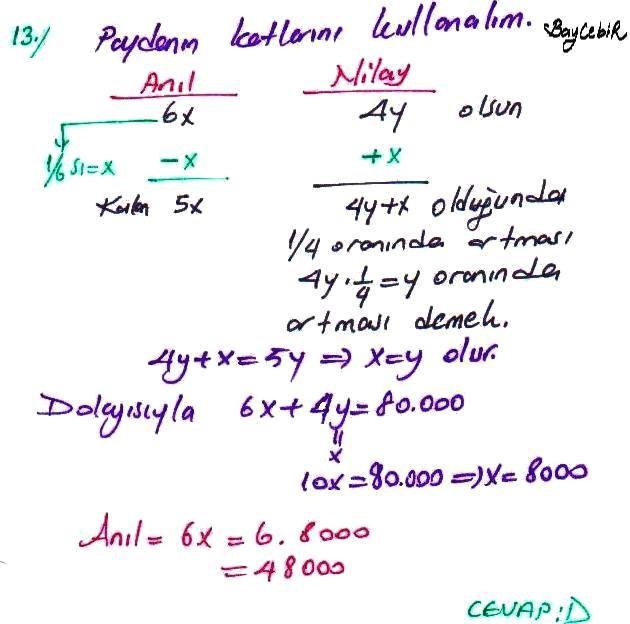 13./ Paydanın katlarını kullanalım. BayCebiR
Anıl Nilay
6x 4y olsun
1/6 sı=x -x +x
Kalan 5x 4y+x olduğundan
1/4 oranında artması
4y.1/4=y oranında
artması demek.
4y+x=5y ⇒ x=y olur.
Dolayısıyla 6x+4y=80.000
=
x
10x=80.000 ⇒ x=8000
Anıl= 6x = 6.8000
=48000
CEVAP:D